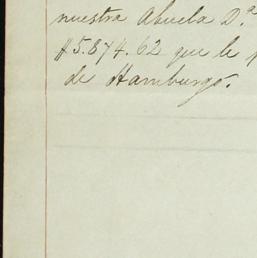 nuestra Abuela D.ª
$5.874.62 que le
de Hamburgo.